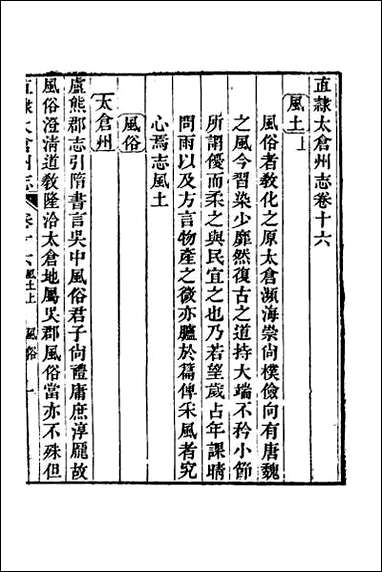 直隸太倉州志卷十六
風土上
風俗者敎化之原太倉瀕海崇尙樸儉向有唐魏
之風今習染少靡然復古之道持大端不矜小節
所謂優而柔之與民宜之也乃若望歲占年課晴
問雨以及方言物產之微亦臚於篇俾采風者究
心焉志風土
風俗
太倉州
盧熊郡志引隋書言吳中風俗君子尙禮庸庶淳龐故
風俗澄清道敎隆洽太倉地屬吳郡風俗當亦不殊但
直隸太倉州志 卷十六 風土上 風俗 一